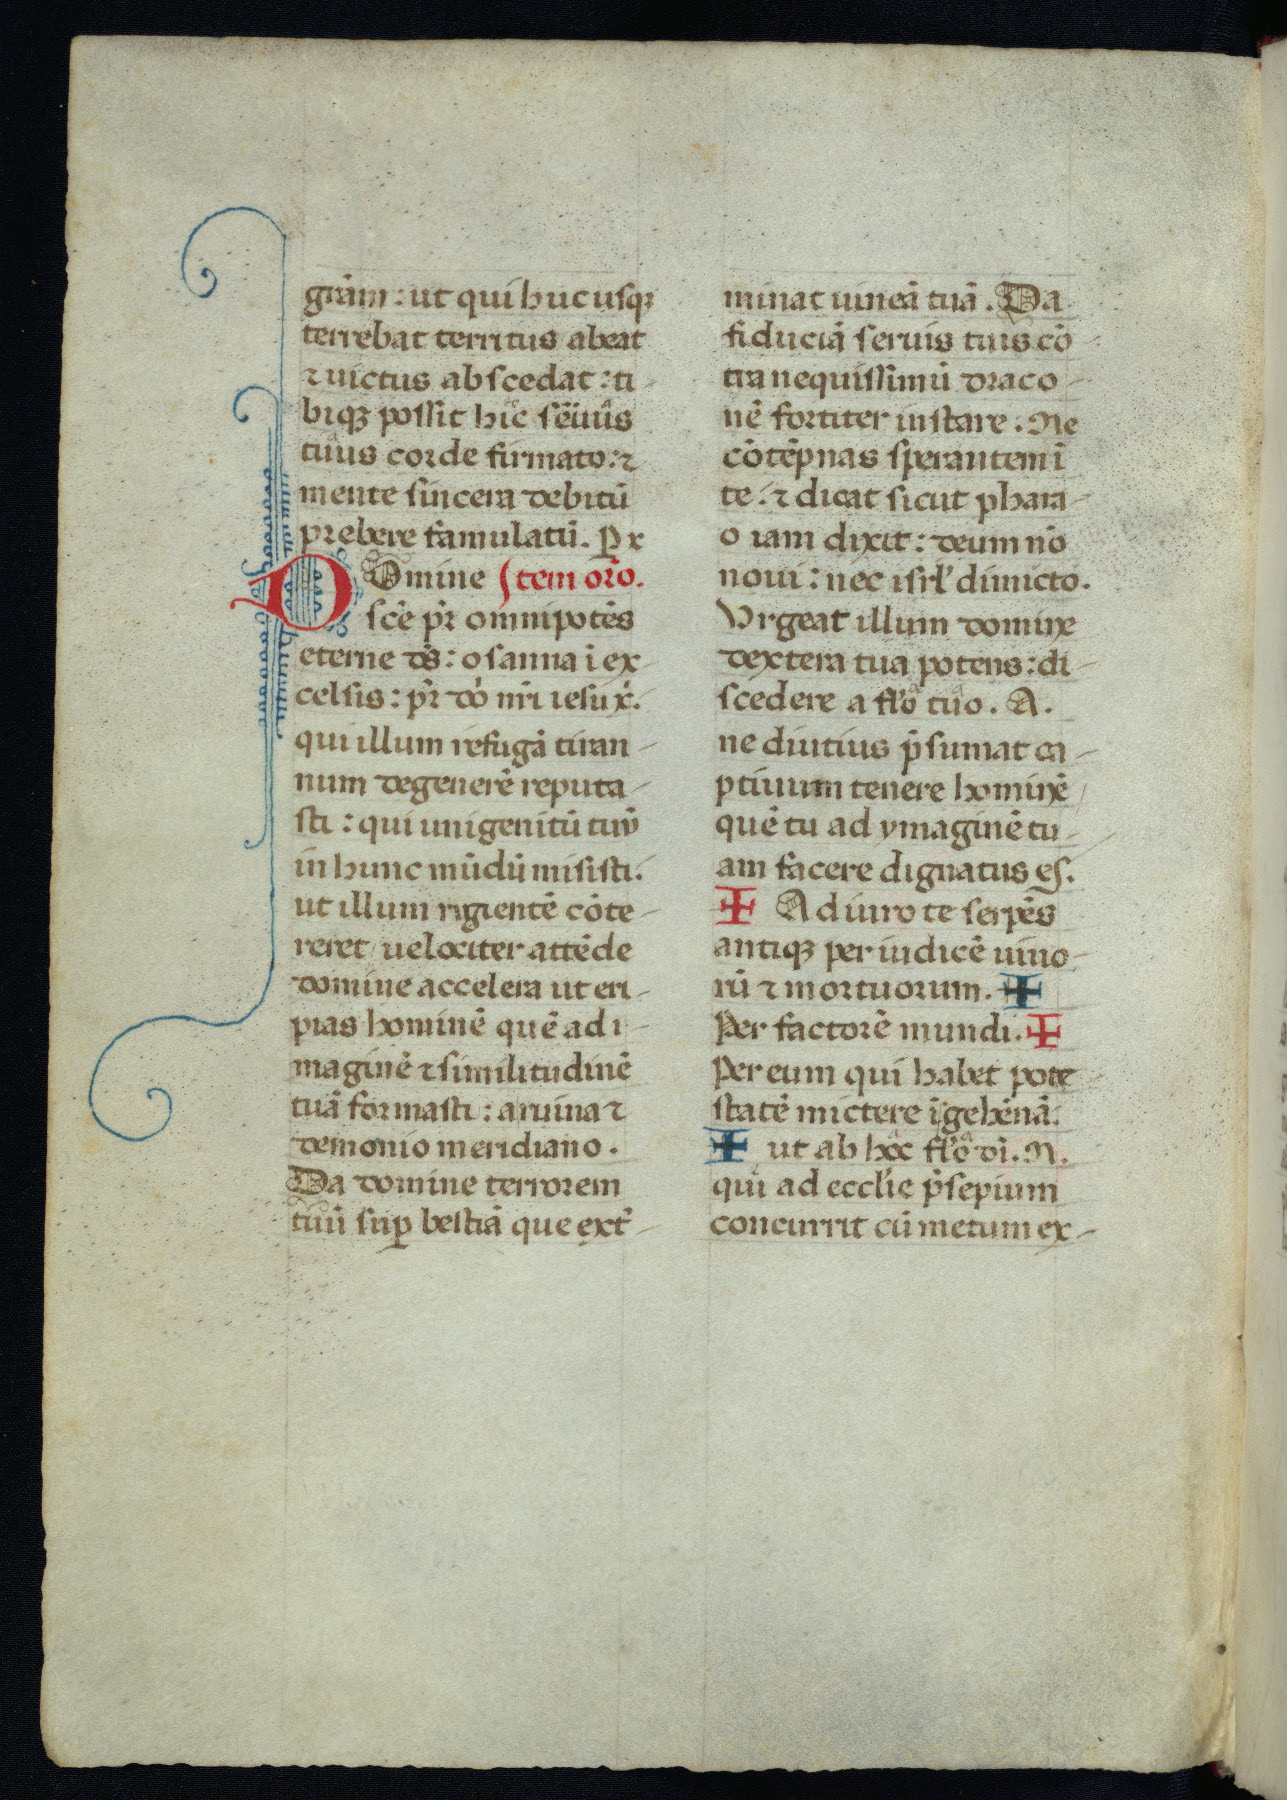 grām: ut qui huc usqꝫ
terrebat territus abeat
⁊ uictus abscedat: ti-
biqꝫ possit hic seruus
tuus corde firmato: ⁊
mente sincera debitū
prebere famulatū. Per
Domine Item oro.
sc̄e pr̄ omnipotēs
eterne ds̄: osanna ī ex-
celsis: pr̄ dō nr̄i iesu x̄.
qui illum refugā tiran-
num degenerē reputa-
sti: qui unigenitū tuū
in hunc mūdū misisti.
ut illum rugientē cōte-
reret uelociter attēde
domine accelera ut eri-
pias hominē quē ad i-
maginē ⁊ similitudinē
tuā formasti: a ruina ⁊
demonio meridiano.
Da domine terrorem
tuū suꝑ bestiā que ext̄-
minat uineā tuā. Da
fiduciā seruis tuis cō-
tra nequissimū draco-
nē fortiter instare. Ne
cōtēpnas sperantem ī
te: ⁊ dicat sicut phara-
o iam dixit: deum nō
noui: nec isrl' dimicto.
Vrgeat illum domine
dextera tua potens: di-
scedere a fl'o tuo. A.
ne diutius p̄sumat ca-
ptiuum tenere hominē
quē tu ad ymaginē tu-
am facere dignatus es.
✠ Adiuro te serpēs
antiqꝫ per iudicē uiuo-
rū ⁊ mortuorum. ✠
Per factorē mundi. ✠
Per eum qui habet pote
statē mictere ī gehēnā.
✠ ut ab hoc fl'o dī. N.
qui ad eccl'ie p̄sepium
concurrit cū metum ex-